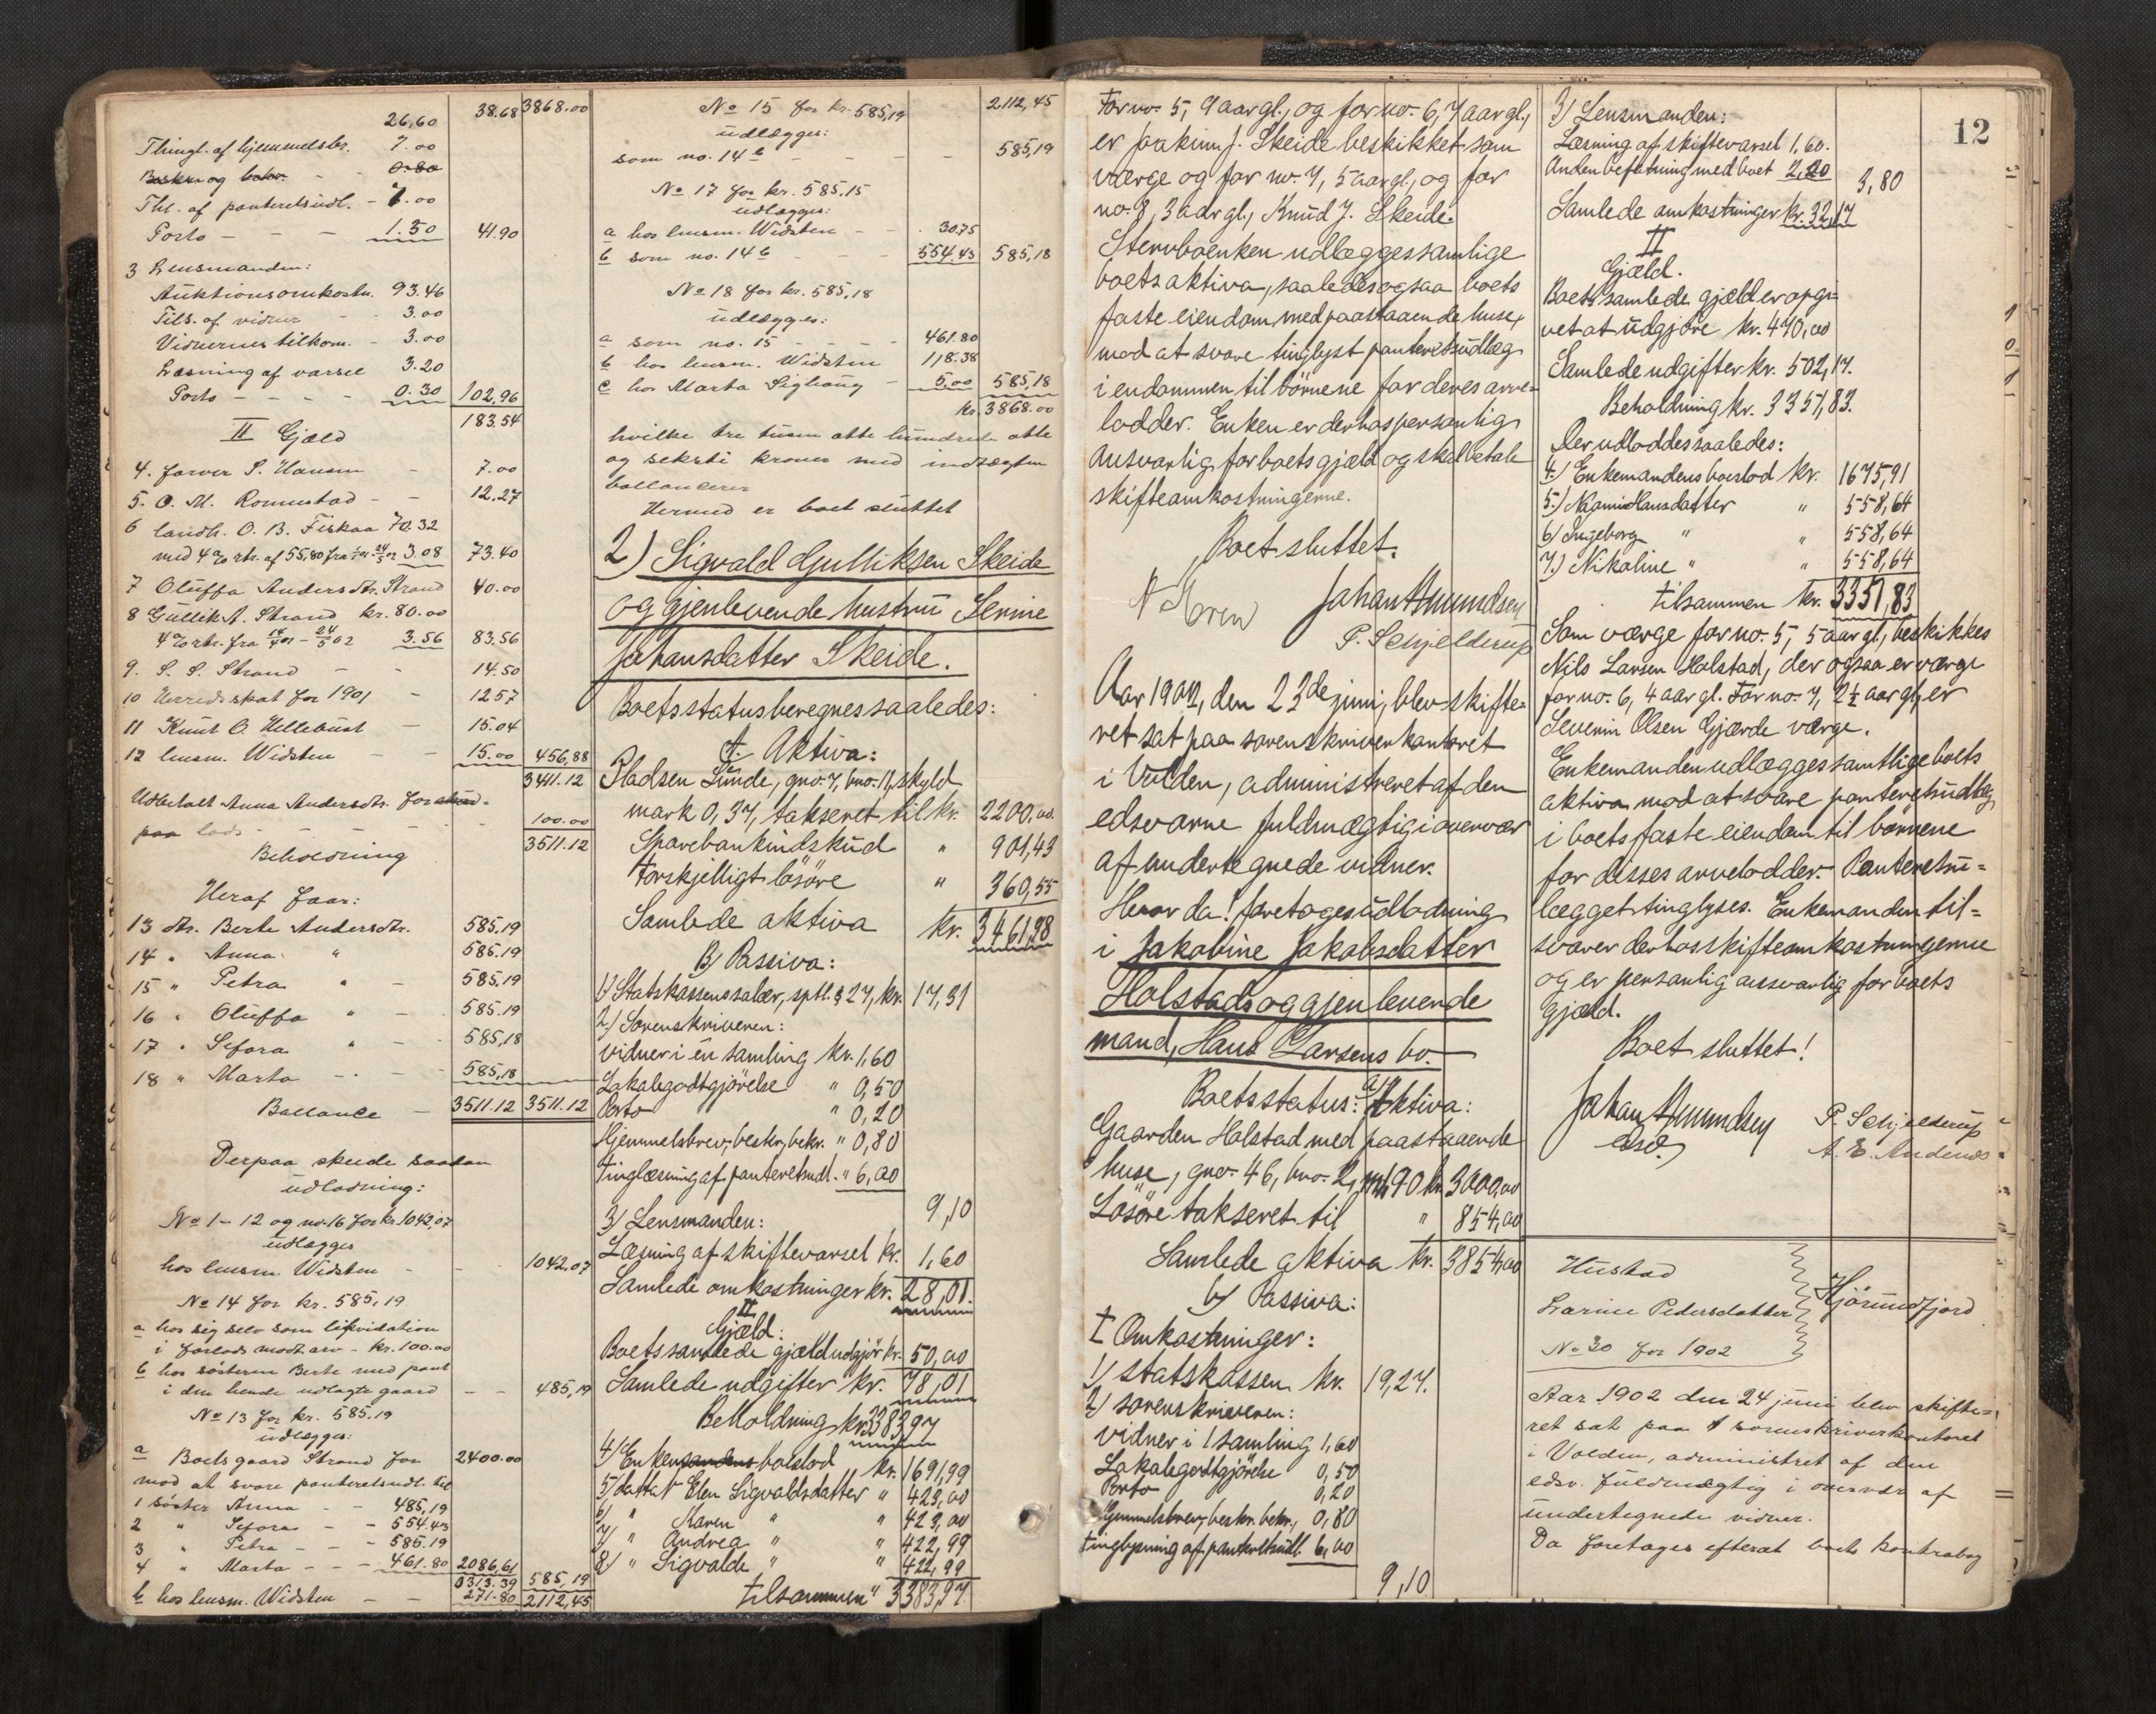 26,60 38.68 3868.00
Thingl. af hjemmelsbr. 7.00
Beskr. og bekr. - - 0.80
Thl. af panteretsudl. - 7.00
Porto - - - 1.50 41.90
3 Lensmanden:
Auktionsomkostn. 93.46
Tils. af vidner - 3.00
Vidnernes tilkom. - 3.00
Læsning af varsel 3.20
Porto - - - - 0.30 102,96
183.54
II Gjæld
4. farver S. Hansen - 7.00
5. O. M. Ronnestad - - 12.27
6 landh. O. B. Fiskaa 70.32
med 4% rtr. af 55,80 fra 3.08 73.40
7 Oluffa Andersdtr. Strand 40.00
8 Gullik A. Strand kr. 80.00
4% rtr. fra 3.56 83.56
9. S. S. Strand - - 14.50
10 Herredsskat for 1901 - 12.57
11 Knut O. Hellebust - 15.04
12 lensm. Widsten - - 15.00 456,88
3411.12
Udbetalt Anna Andersdtr. forskud
paa lods - - - - - 100.00
Beholdning 3511.12
Heraf faar:
13 dtr. Berte Andersdtr. 585.19
14 " Anna " 585.19
15 " Petra " - 585.19
16 " Oluffa " - 585.19
17 " Sefora " - 585,18
18 " Marta - - - 585,18
Ballance - 3511.12 3511.12
Derpaa skede saadan
udlodning:
No 1 - 12 og no. 16 for kr. 1042,07
udlægges
hos lensm. Widsten - - 1042.07
No 14 for kr. 585,19
a hos sig selv som likvidation
i forlods modt. arv - kr. 100.00
b hos søsteren Berte med pant
i den hende udlagte gaard - - 485,19
No 13 for kr. 585.19
udlægges:
a Boets gaard Strand for 2400.00
mod at svare panteretsudl. til
1 søster Anna - - 485,19
2 " Sefora - - 554.43
3 " Petra - - 585.19
4 " Marta - - 461.80 2086,61
0313.39 585,19
b hos lensm. Widsten - - 271.80 2112,45
No 15 for kr. 585,19 2112,45
udlægges:
som no. 14 b - - - - 585,19
No 17 for kr. 585.15
udlægges:
a hos lensm. Widsten - - 30.75
b som no. 14 b - - - 554.43 585,18
No 18 for kr. 585,18
udlægges:
a som no. 15 - - - - 461.80
b hos lensm. Widsten 118.38
c hos Marta Sighaug - 5.00 585,18
kr. 3868.00
hvilke tre tusen otte hundrede otte
og seksti kroner med indtægten
ballancerer
Hermed er boet sluttet
2) Sigvald Gulliksen Skeide
og gjenlevende hustru Serine
Johansdatter Skeide.
Boets status beregnes saaledes:
A. Aktiva:
Pladsen Lunde, gno. 7, bno. 11, skyld
mark 0,37, takseret til kr. 2200,00
Sparebankindskud " 901,43
Forskjelligt løsøre " 360,55
Samlede aktiva kr. 3461,98
B) Passiva:
1) Statskassens salær, sptl. § 27, kr. 17,31
2) Sorenskriveren:
vidner i èn samling kr. 1,60
Lokalegodtgjørelse " 0,50
Porto " 0,20
Hjemmelsbrev, beskr, bekr. " 0,80
Tinglæsning af panteretsudl. " 6,00
9,10
3) Lensmanden:
Læsning af skiftevarsel kr. 1,60
Samlede omkostninger kr. 28,01.
II
Gjæld:
Boets samlede gjæld udgjør kr. 50,00
Samlede udgifter kr. 78,01
Beholdning kr. 3383,97
4) Enkens boslod kr. 1691,99
5) datter Elen Sigvaldsdatter " 423,00
6) " Karen " " 423,00
7) " Andrea " " 422,99
8) " Sigvalde " " 422,99
tilsammen " 3383,97.
12
For no. 5, 9 aar gl., og for no. 6, 7 aar gl.,
er Joakim J. Skeide beskikket som
værge og for no. 7, 5 aar gl., og for
no. 8, 3 aar gl., Knud J. Skeide.
Stervboenken udlægges samlige
boets aktiva, saaledes ogsaa boets
faste eiendom med paastaaende huse,
mod at svare tinglyst panteretsudlæg
i endommen til børnene for deres arve=
lodder. Enken er derhos personlig
ansvarlig for boets gjæld og skal betale
skifteomkostningerne.
Boet sluttet.
Johan Amundsen
P. Schjelderup
Aar 1902, den 23de juni, blev skifte=
ret sat paa sorenskriverkontoret
i Volden, administreret af den
edsvorne fuldmægtig i overvær
af undertegnede vidner.
Hvor da! foretoges udlodning
i Jakobine Jakobsdatter
Holstads og gjenlevende
mand, Hans Larsens bo.
Boets status: a) Aktiva:
Gaarden Holstad med paastaaende
huse, gno. 46, bno. 2, 1,90 kr. 3000,00
Løsøre takseret til " 854,00
Samlede aktiva kr. 3854,00
b) Passiva:
I Omkostninger:
1) Statskassen kr. 19,27.
2) sorenskriveren:
vidner i 1 samling 1,60
Lokalegodtgjørelse 0,50
Porto 0,20
Hjemmelsbrev, beskr. bekr., 0,80
tinglysning af panteretsudl. 6,00
9,10
3) Lensmanden:
Læsning af skiftevarsel 1,60.
Anden befatning med boet 2,20 3,80
Samlede omkostninger kr. 32,17
II
Gjæld.
Boets samlede gjæld er opgi=
vet at udgjøre kr. 470,00
Samlede udgifter kr. 502,17.
Beholdning kr. 3351,83.
Der udloddes saaledes:
4.) Enkemandens boeslod kr. 1675,91
5.) Naomi Hansdatter " 558,64
6) Ingeborg " " 558,64
7.) Nikoline " " 558,64
tilsammen kr. 3351,83
Som værge for no. 5, 5 aar gl., beskikkes
Nils Larsen Holstad, der ogsaa er værge
for no. 6, 4 aar gl. For no. 7, 2½ aar gl, er
Severin Olsen Gjærde værge.
Enkemanden udlægges samtlige boets
aktiva mod at svare panteretsudlæg
i boets faste eiendom til børnene
for disses arvelodder. Panteretsu=
lægget tinglyses. Enkemanden til=
svarer derhos skifteomkostningerne
og er personlig ansvarlig for boets
gjæld.
Boet sluttet!
Johan Amundsen P. Schjelderup
Hustad
Larine Pedersdatter Hjørundfjord
No 30 for 1902
Aar 1902 den 24 juni blev skifte=
ret sat paa sorenskriverkontoret
i Volden, administret af den
edsv. fuldmægtig i overvær af
undertegnede vidner.
Da foretages efterat boets